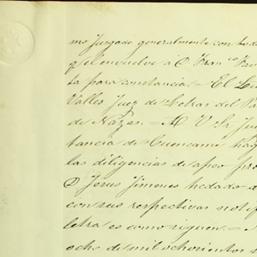 mo Juzgado generalmente con todo
que envuelve a O Fran.co
ta para constancia.- El
Valles Juez de Letras del Pa
de Nazas.- M. V. S. Juz
tancia de Cuencamé hag
las diligencias de apeo
D Jesus Jimenes
con sus respectivas notif
letra es como siguen.-
ocho de mil ochocientos